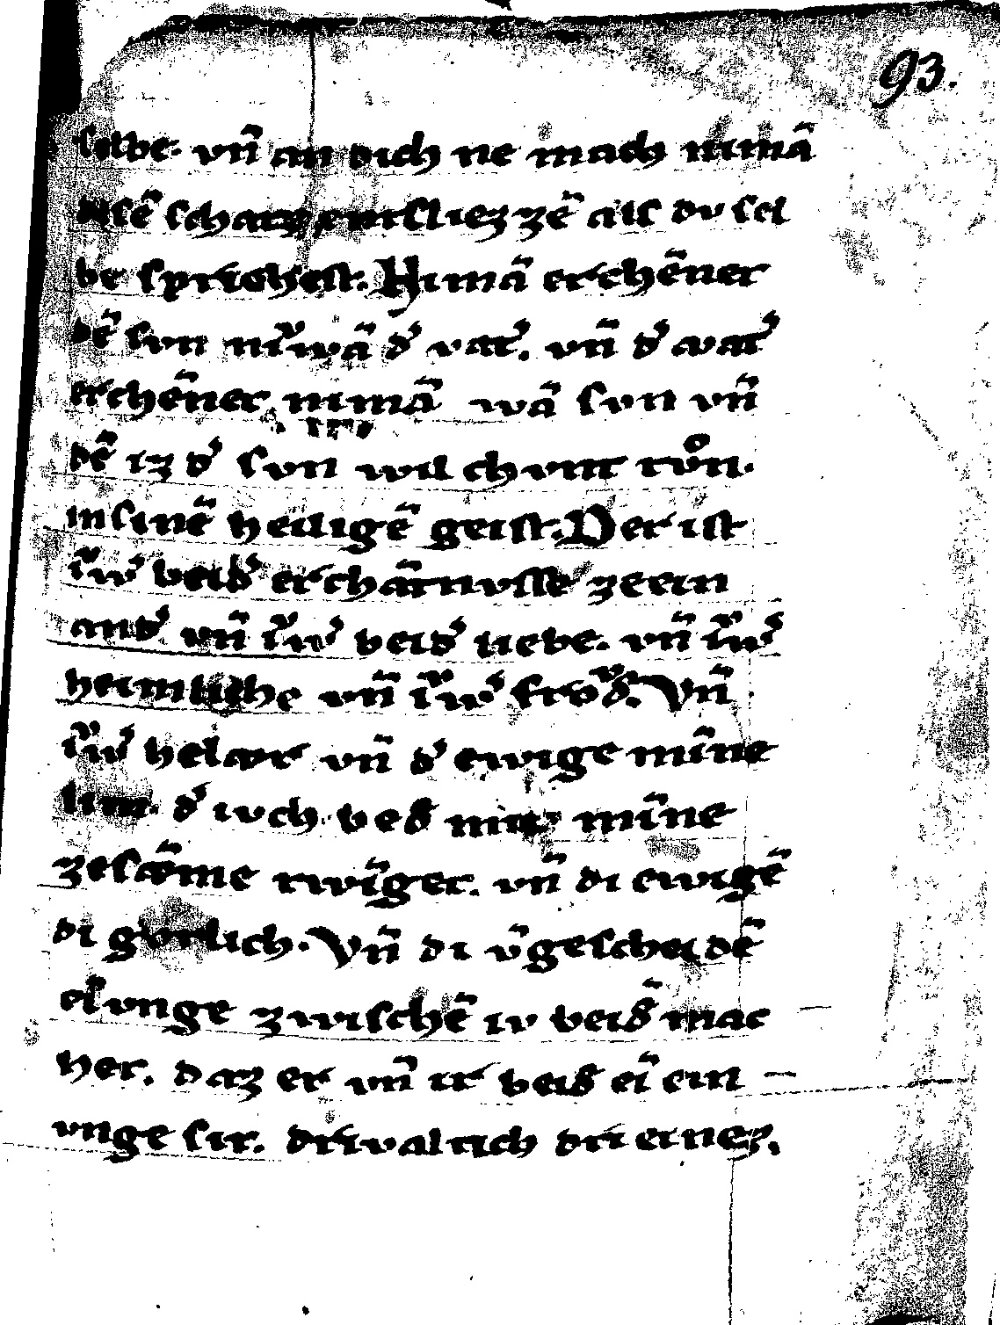 93.
selbe. vn̄ an dich ne mach nimā
disē schatz entsliezzē als du sel
be sprichest. Nimā erchēnet
dē sun niwā d̾ vat̾. vn̄ d̾ vat̾
erchēnet nimā wā sun vn̄
dē iz d̾ sun wil chunt tuͦn.
in sinē heiligē geist. Der ist
iw̾ beid̾ erchātnusse ze ein
and̾ vn̄ iw̾ beid̾ liebe. vn̄ iw̾
heimliche vn̄ iw̾ frovͤd̾. Vn̄
iw̾ helær vn̄ d̾ ewige mīne
lim. d̾ iuch bed̾ mit mīne
zesæmne twīget. vn̄ di ewigē
di gutlich. Vn̄ di v̄gescheidē
elunge zwischē iu beid̾ mac
het. daz er vn̄ ir beid̾ eī ein
unge sit. drivaltich dri einez.